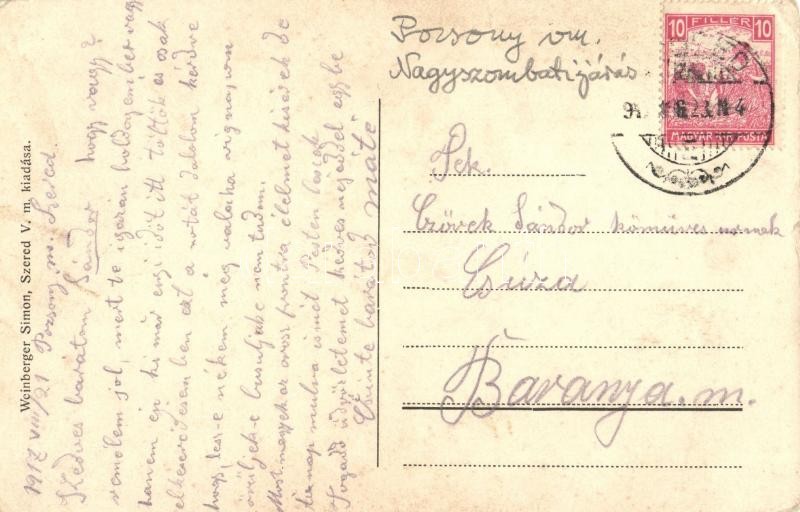 Weinberger Simon, Szered V. m. kiadása.
1917 VIII/21 Pozsony m. Szered
Kedves baratom Sándor hogy vagy?
remélem jol, mert te igazan boldog ember vagy
hanem én ki már engi időt itt töltök és csak
elkeseredésemben ezt a notát dalolom kérdve
hogy, lesz-e nékem még valaha vig napom
örüljek-e busuljak-e nem tudom.
Most magyek az orosz frontra élelmet kisérek de
tiz nap mulva ismét Pesten leszek
Fogadd üdvözletemet kedves nejeddel egybe
Őszinte baratod máté
Pozsony vm.
Nagyszombati járás
10 FILLÉR 10
MAGYAR KIR. POSTA
Tek.
Czövek Sándor kőműves urnak
Csúza
Baranya. m.